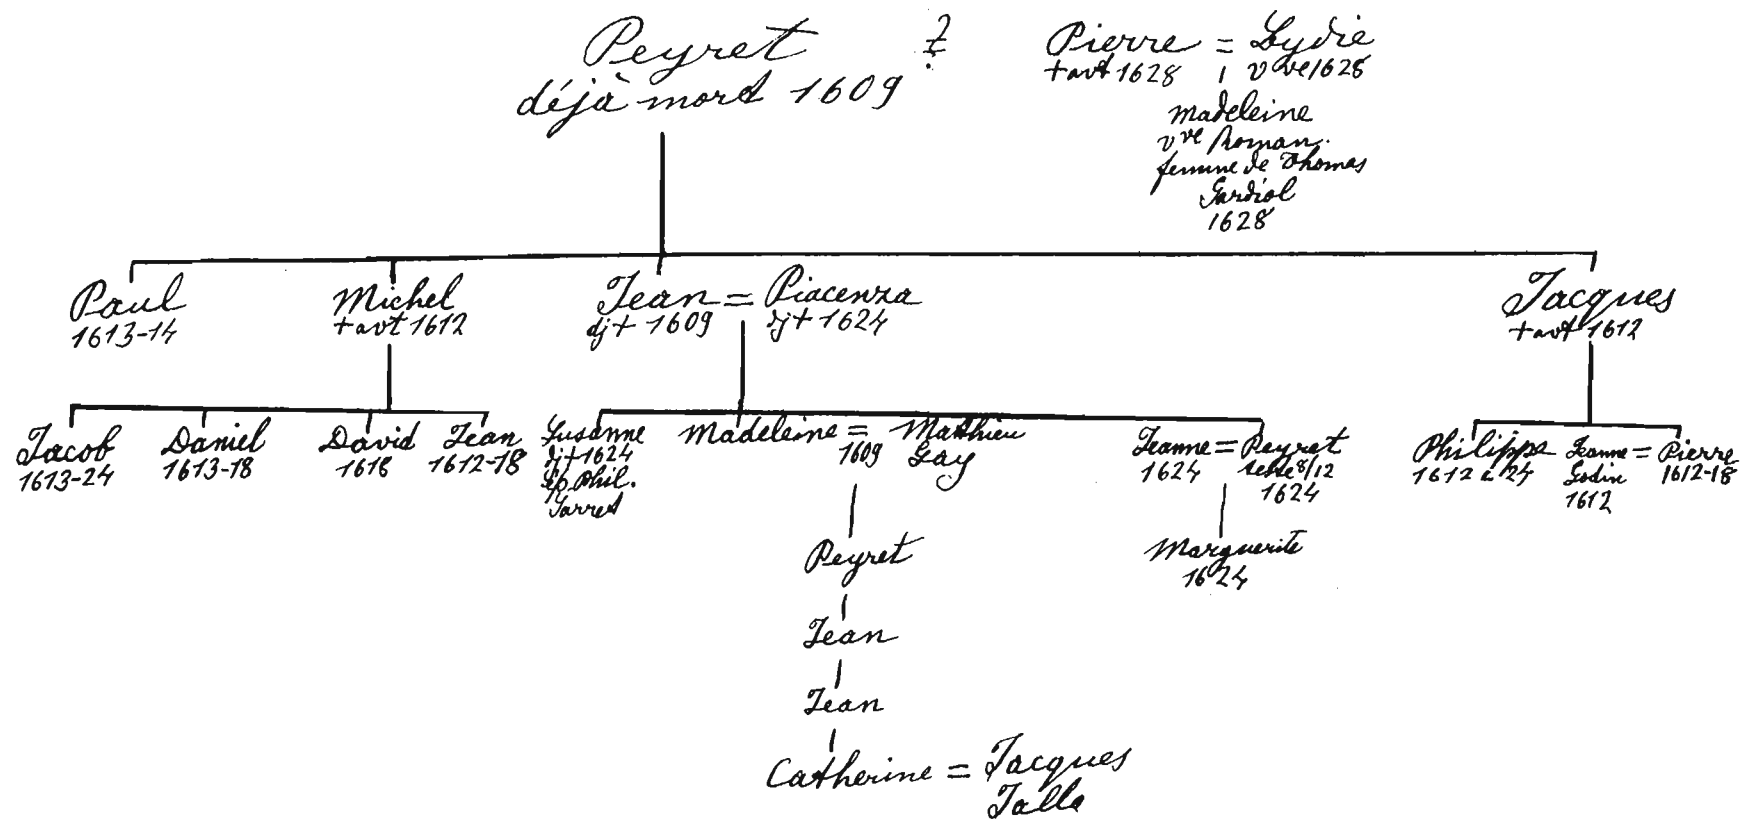 Peyret
déjà mort 1609
?
Pierre = Lydie
+ avt 1628 vve 1628
Madeleine
vve Roman.
femme de Thomas
Gardiol
1628
Paul
1613-14
Michel
+ avt 1612
Jean = Piacenza
dj + 1609 dj + 1624
Jacques
+ avt 1612
Jacob
1613-24
Daniel
1613-18
David
1618
Jean
1612-18
Susanne
dj + 1624
ép. Phil.
Madeleine = Mathieu
1609 Gay
Jeanne = Peyret
1624 teste 8/12
1624
Philippe
1612 24
Jeanne = Pierre
Godin 1612-18
1612
Peyret
Marguerite
1624
Jean
Jean
Catherine = Jacques
Jalla